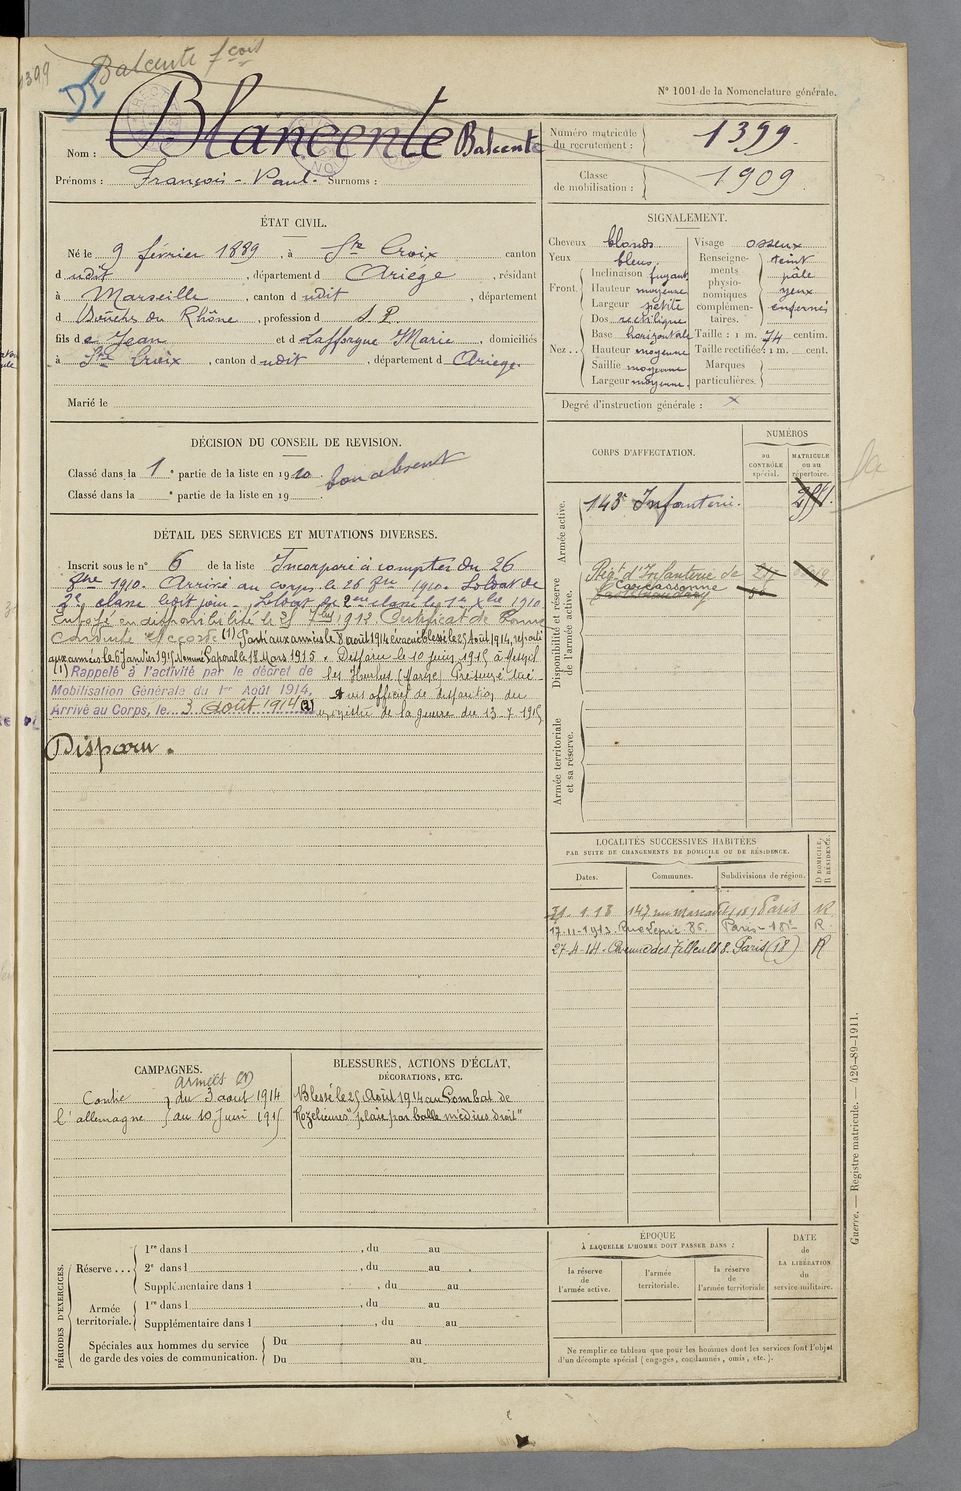 1399
Balcente fcois
N° 1001 de la Nomenclature générale.
Nom : Blancente Balcente
Prénoms : François - Paul - Surnoms :
Numéro matricule du recrutement : 1399.
Classe de mobilisation : 1909
ÉTAT CIVIL.
Né le 9 février 1889, à Ste Croix canton
d udit, département d Ariège, résidant
à Marseille, canton d udit, département
d Bouches du Rhône, profession d S. P.
fils de Jean et d Lafforgue Marie, domiciliés
à Ste Croix, canton d udit, département d Ariège.
Marié le
SIGNALEMENT.
Cheveux blonds.
Yeux bleus.
Front. Inclinaison fuyant
Hauteur moyenne
Largeur petite
Nez .. Dos rectiligne
Base horizontale
Hauteur moyenne
Saillie moyenne
Largeur moyenne.
Visage osseux
Renseignements physionomiques complémentaires. teint pâle yeux enfermés
Taille : 1 m. 74 centim.
Taille rectifiée : 1 m. cent.
Marques particulières.
Degré d'instruction générale : x
DÉCISION DU CONSEIL DE REVISION.
Classé dans la 1e partie de la liste en 1910 bon absent
Classé dans la e partie de la liste en 19
DÉTAIL DES SERVICES ET MUTATIONS DIVERSES.
Inscrit sous le n° 6 de la liste Incorporé à compter du 26
9bre 1910. Arrivé au corps le 26 9bre 1910. Soldat de
2e classe
Envoyé en disponibilité le 25 7bre 1912 Certificat de Bonne
conduite accordé (1) Parti aux armées le 8 août 1914 évacué blessé le 25 Août 1914, reparti
aux armées le 6 Janvier 1915 Nommé Caporal le 18 Mars 1915. Disparu le 10 juin 1915 à Mesnil
(1) Rappelé à l'activité par le décret de
Mobilisation Générale du 1er Août 1914,
Arrivé au Corps, le 3 Août 1914 (1)
les Hurlus (Marne) Présumé tué
Avis officiel de disparition du
ministre de la guerre du 13-7-1915
Disparu.
CORPS D'AFFECTATION.
NUMÉROS
au CONTRÔLE spécial.
MATRICULE ou au répertoire.
Armée active.
143e Infanterie.
Disponibilité et réserve de l'armée active.
Régt d'Infanterie de
Carcassonne
Castelnaudary
Armée territoriale et sa réserve.
LOCALITÉS SUCCESSIVES HABITÉES
PAR SUITE DE CHANGEMENTS DE DOMICILE OU DE RÉSIDENCE.
Dates. Communes. Subdivisions de région. D DOMICILE, R RÉSIDENCE.
31. 1. 13 147 rue Marcadet (18) Paris R
17-11-1913. Rue Lepic 86. Paris - 18e R
27-4-14. Avenue des Tilleuls 8. Paris (18) R
CAMPAGNES.
armées (1)
Contre du 3 août 1914
l'allemagne au 10 Juin 1915
BLESSURES, ACTIONS D'ÉCLAT,
DÉCORATIONS, ETC.
Blessé le 25 Août 1914 au Combat de
Rozelieures "plaie par balle médius droit"
PÉRIODES D'EXERCICES.
Réserve ...
1re dans l , du au
2e dans l , du au
Supplémentaire dans l , du au
Armée territoriale.
1re dans l , du au
Supplémentaire dans l , du au
Spéciales aux hommes du service de garde des voies de communication.
Du au
Du au
ÉPOQUE
À LAQUELLE L'HOMME DOIT PASSER DANS :
la réserve de l'armée active.
l'armée territoriale.
la réserve de l'armée territoriale
DATE de LA LIBÉRATION du service militaire.
Ne remplir ce tableau que pour les hommes dont les services font l'objet
d'un décompte spécial (engagés, condamnés, omis, etc.).
Guerre. — Registre matricule. — 426-89-1911.